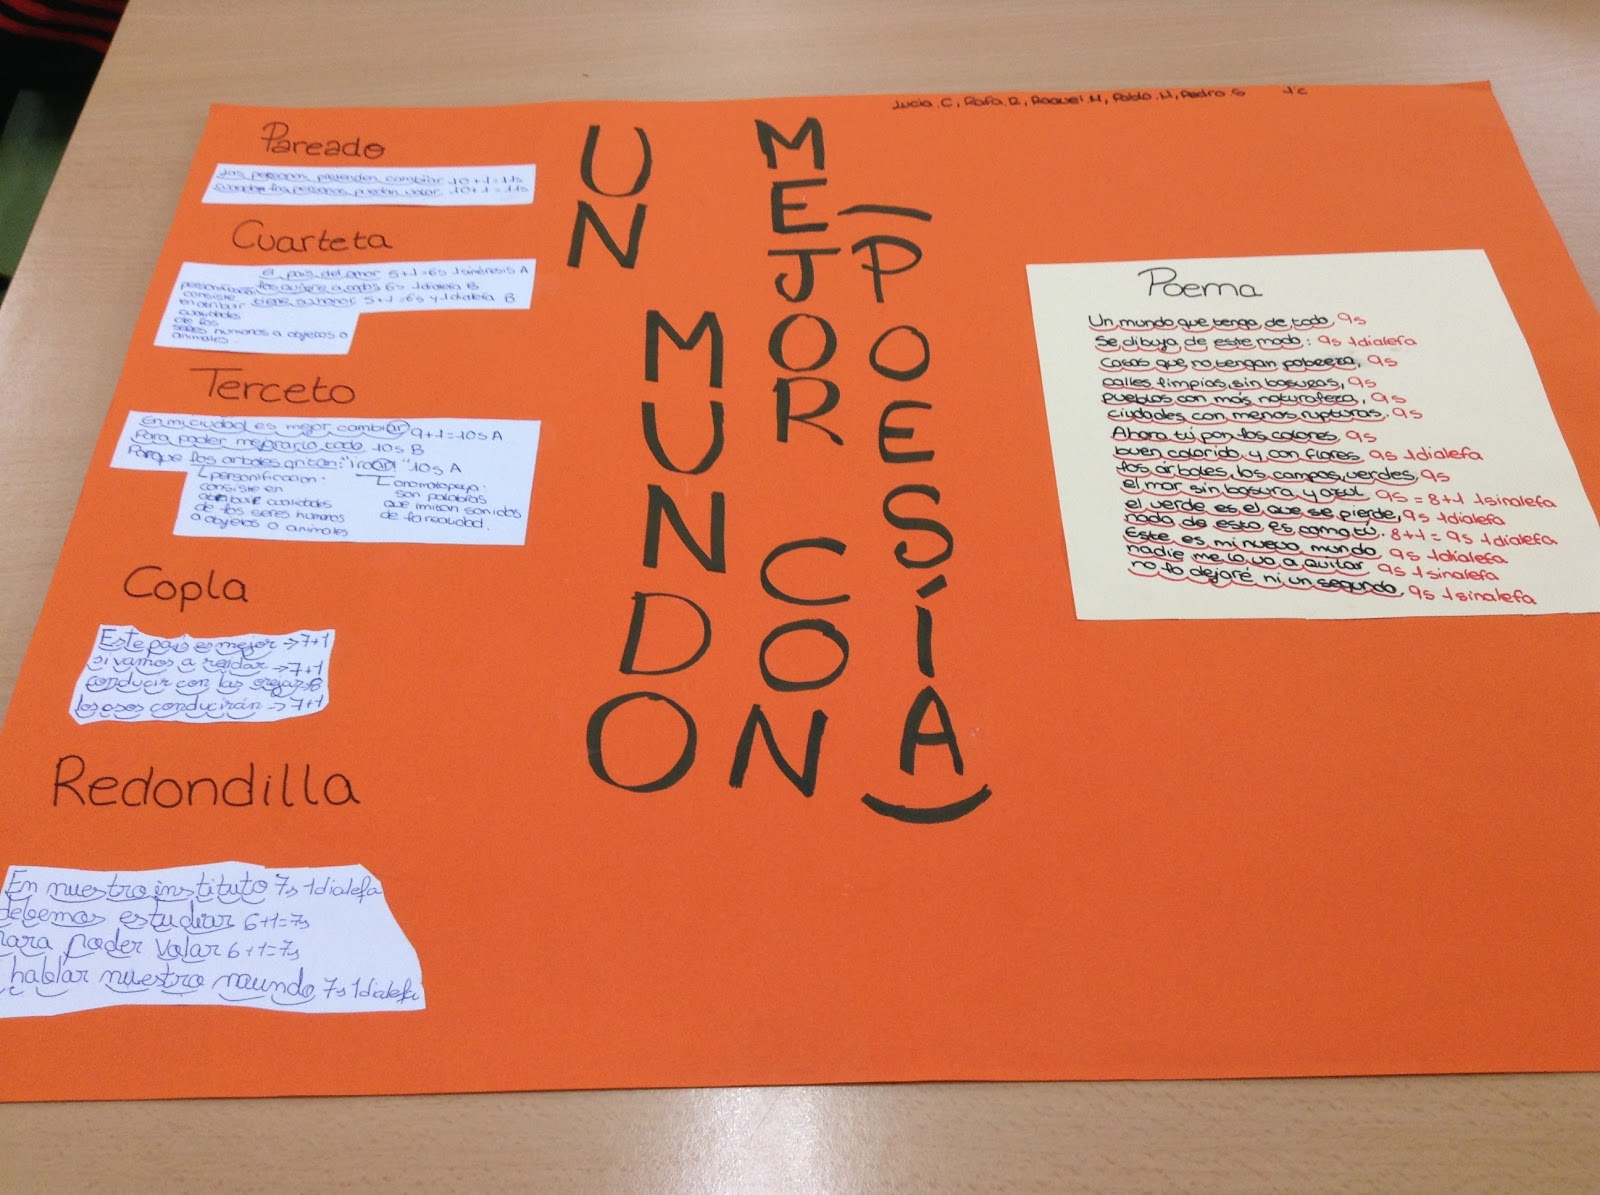 Lucía.C, Rafa.R, Raquel.M, Pablo.M, Pedro.S 1ºc
UN MUNDO MEJOR CON POESÍA
Pareado
Las personas pretenden cambiar 10+1=11s
las personas puedan volar 10+1=11s
Cuarteta
El país del amor 5+1=6s 1 sinéresis A
los quiere a todos 6s 1dialefa B
tiene su honor 5+1=6s y 1dialefa B
personificación
consiste
en atribuir
cualidades
de los
seres humanos a objetos o
animales.
Terceto
En mi ciudad es mejor cambiar 9+1=10s A
Para poder mejorarlo todo 10s B
Porque los arboles gritan: 10s A
personificacion:
consiste en
atribuir cualidades
de los seres humanos
a objetos o animales
onomatopeya:
son palabras
que imitan sonidos
de la realidad.
Copla
Este país es mejor →7+1
si vamos a →7+1
conducir con las orejas 8
los osos conducirán →7+1
Redondilla
En nuestro instituto 7s 1dialefa
debemos estudiar 6+1=7s
para poder volar 6+1=7s
hablar nuestro mundo 7s 1dialefa
Poema
Un mundo que tenga de todo, 9s
Se dibuja de este modo: 9s 1dialefa
Casas que no tengan pobreza, 9s
calles limpias, sin basuras, 9s
pueblos con más naturaleza, 9s
ciudades con menos rupturas. 9s
Ahora tú pon los colores 9s
buen colorido y con flores 9s 1dialefa
los árboles, los campos, verdes 9s
el mar sin basura y azul 9s = 8+1 1sinalefa
el verde es el que se pierde, 9s 1dialefa
nada de esto es como tú. 8+1 = 9s 1dialefa
Este es mi nuevo mundo 9s 1dialefa
nadie me lo va a quitar 9s 1sinalefa
no lo dejaré ni un segundo, 9s 1sinalefa